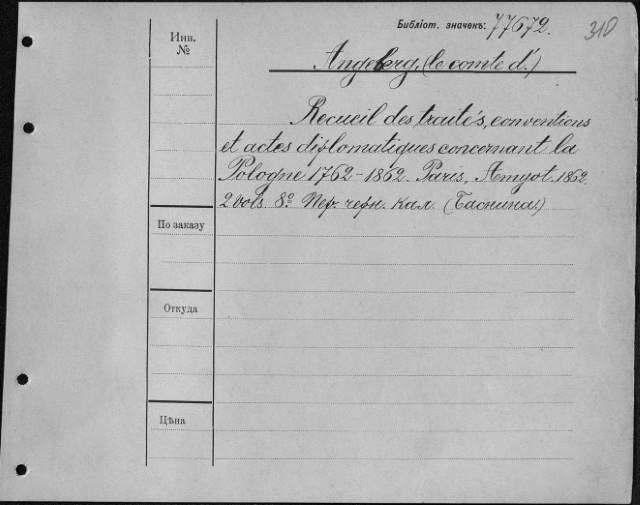 Библіот. значекъ: 77672.
310
Инв.
№
Angeberg, (le comte d'.)
Recueil des traités, conventions
et actes diplomatiques concernant la
Pologne 1762-1862. Paris, Amyot. 1862.
2 vols. 8º. Пер. черн. кал. (Баснина.)
По заказу
Откуда
Цѣна